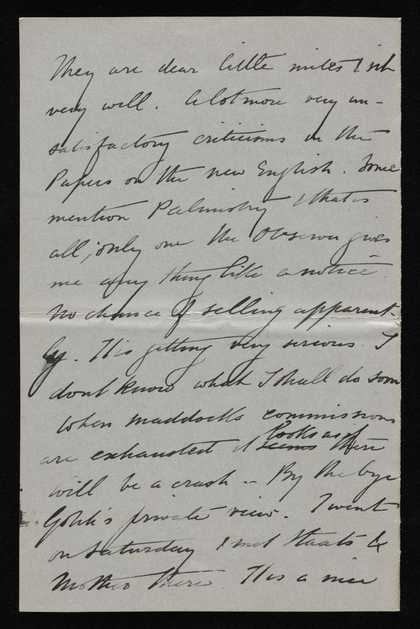 They are dear little mites & sit
very well. A lot more very un-
satisfactory criticisms in the
Papers on the new English. Some
mention Palmistry & that is
all, only one the Observer gives
me any thing like a notice.
No chance of selling apparent-
ly. It is getting very serious. I
dont know what I shall do soon
When Maddocks commissions
are exhausted it looks as if there
will be a crash -- By the bye
private view. I went
on Saturday & met Staats &
Mother there. It is a nice